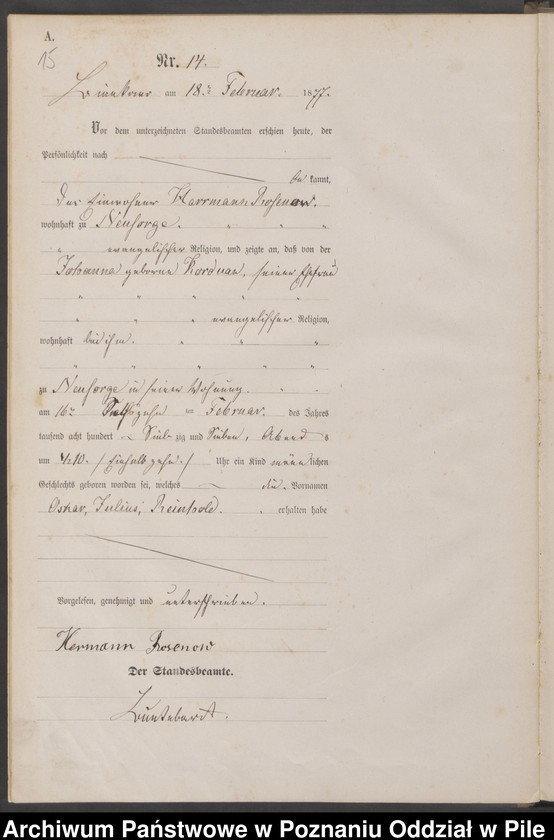 A.
15
Nr. 14.
am 18. Februar. 1877.
Vor dem unterzeichneten Standesbeamten erschien heute, der
Persönlichkeit nach
be kannt,
der Einwohner Herrmann Rosenow.
wohnhaft zu Neusorge.
evangelischer Religion, und zeigte an, daß von der
Johanna geborne Korduan, seiner Ehefrau
evangelischer Religion,
wohnhaft bei ihm.
zu Neusorge in seiner Wohnung.
am 16. ten Februar. des Jahres
tausend acht hundert Sieb- zig und Sieben, Abends
um 1/2 10. /Einhalb zehn./ Uhr ein Kind männ lichen
Geschlechts geboren worden sei, welches die Vornamen
Oskar, Julius, Reinhold. erhalten habe
Vorgelesen, genehmigt und unterschrieben.
Hermann Rosenow
Der Standesbeamte.
Archiwum Państwowe w Poznaniu Oddział w Pile